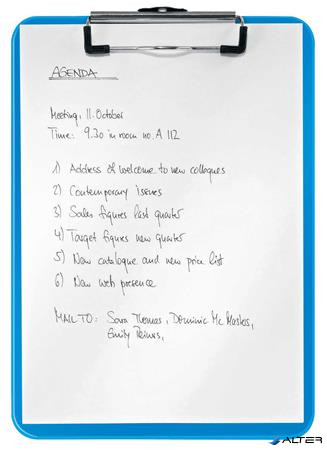 AGENDA
Meeting: 11. October
Time: 9.30 in room no. A 112
1) Address of welcome to new colleques
2) Contemporary issues
3) Sales figures last quarter
4) Target figures new quarter
5) New catalogue and new price list
6) New web presence
MAIL TO: Sara Thomas, Dominic Mc Masters,
Emily
ALTER